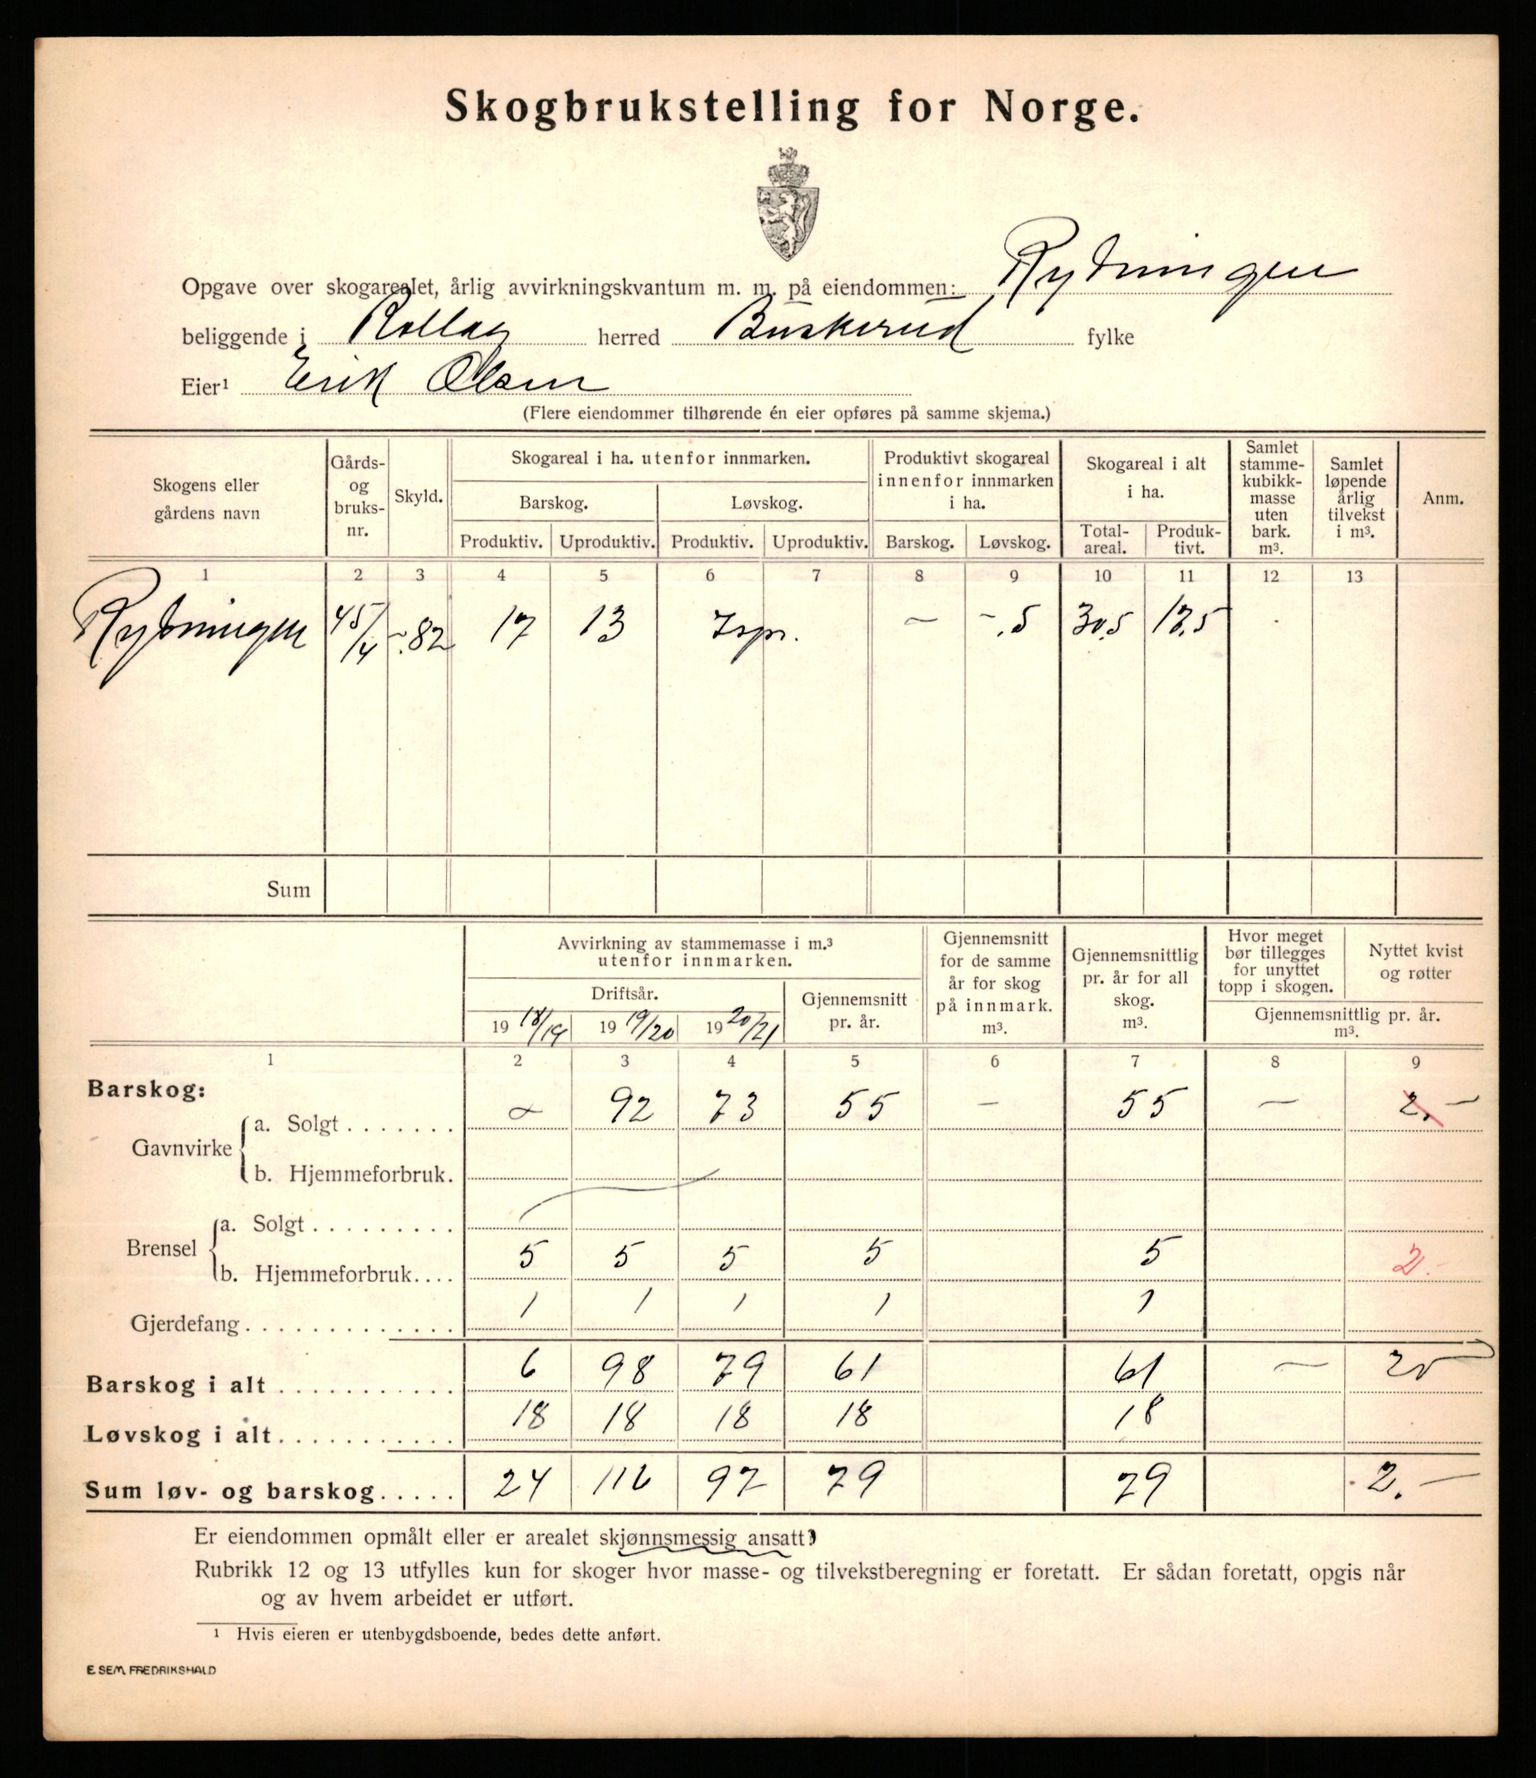 Skogbrukstelling for Norge.
Opgave over skogarealet, årlig avvirkningskvantum m. m. på eiendommen: Rytningen
beliggende i Rollag herred Buskerud fylke
Eier¹ Erik Olsen
(Flere eiendommer tilhørende én eier opføres på samme skjema.)
Skogens eller gårdens navn
Gårds- og bruks- nr.
Skyld.
Skogareal i ha. utenfor innmarken.
Barskog. Løvskog.
Produktiv. Uproduktiv. Produktiv. Uproduktiv.
Produktivt skogareal innenfor innmarken i ha.
Barskog. Løvskog.
Skogareal i alt i ha.
Total- areal. Produk- tivt.
Samlet stamme- kubikk- masse uten bark. m³.
Samlet løpende årlig tilvekst i m³.
Anm.
1 2 3 4 5 6 7 8 9 10 11 12 13
Rytningen 45/4 -.82 17 13 7 spr. — -.5 30,5 17,5
Sum
Avvirkning av stammemasse i m.³ utenfor innmarken.
Driftsår.
19 18/19 19 19/20 19 20/21
Gjennemsnitt pr. år.
Gjennemsnitt for de samme år for skog på innmark. m³.
Gjennemsnittlig pr. år for all skog. m³.
Hvor meget bør tillegges for unyttet topp i skogen.
Nyttet kvist og røtter
Gjennemsnittlig pr. år. m³.
1 2 3 4 5 6 7 8 9
Barskog:
Gavnvirke a. Solgt . . . . . . . 92 73 55 — 55 — 2.—
b. Hjemmeforbruk.
Brensel a. Solgt . . . . . . . . .
b. Hjemmeforbruk. . . . 5 5 5 5 5 2.-
Gjerdefang . . . . . . . . . . . . . 1 1 1 1 1
Barskog i alt . . . . . . . . . . . 6 98 79 61 61 —
Løvskog i alt . . . . . . . . . . . 18 18 18 18 18
Sum løv- og barskog. . . . . 24 116 97 79 79 2.—
Er eiendommen opmålt eller er arealet skjønnsmessig ansatt?
Rubrikk 12 og 13 utfylles kun for skoger hvor masse- og tilvekstberegning er foretatt. Er sådan foretatt, opgis når
og av hvem arbeidet er utført.
¹ Hvis eieren er utenbygdsboende, bedes dette anført.
E. SEM, FREDRIKSHALD